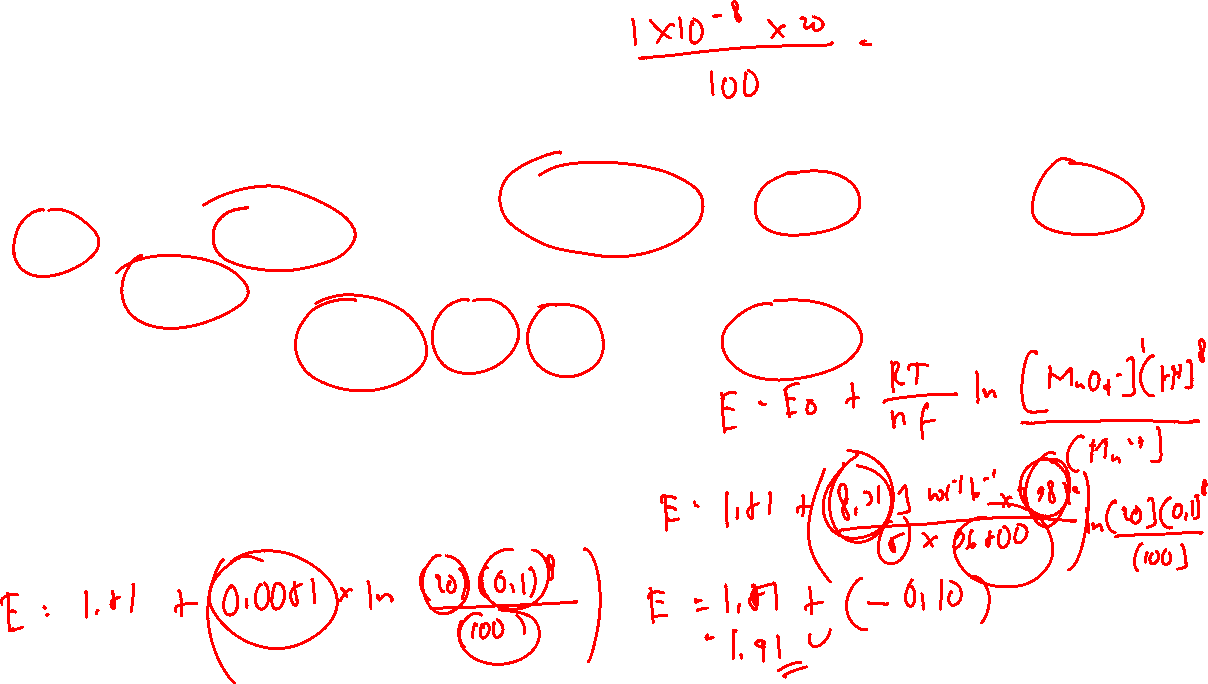 1 × 10⁻⁸ × 20 =
100
E = E₀ + RT/nF ln [MnO₄⁻]¹[H⁺]⁸
[Mn²⁺]
E = 1.51 + (8.31 J mol⁻¹ k⁻¹ × 298 / 5 × 96500) ln [20][0,1]⁸
[100]
E = 1.51 + (0.0051 × ln (20)(0,1)⁸ / (100))
E = 1.51 + (-0,10)